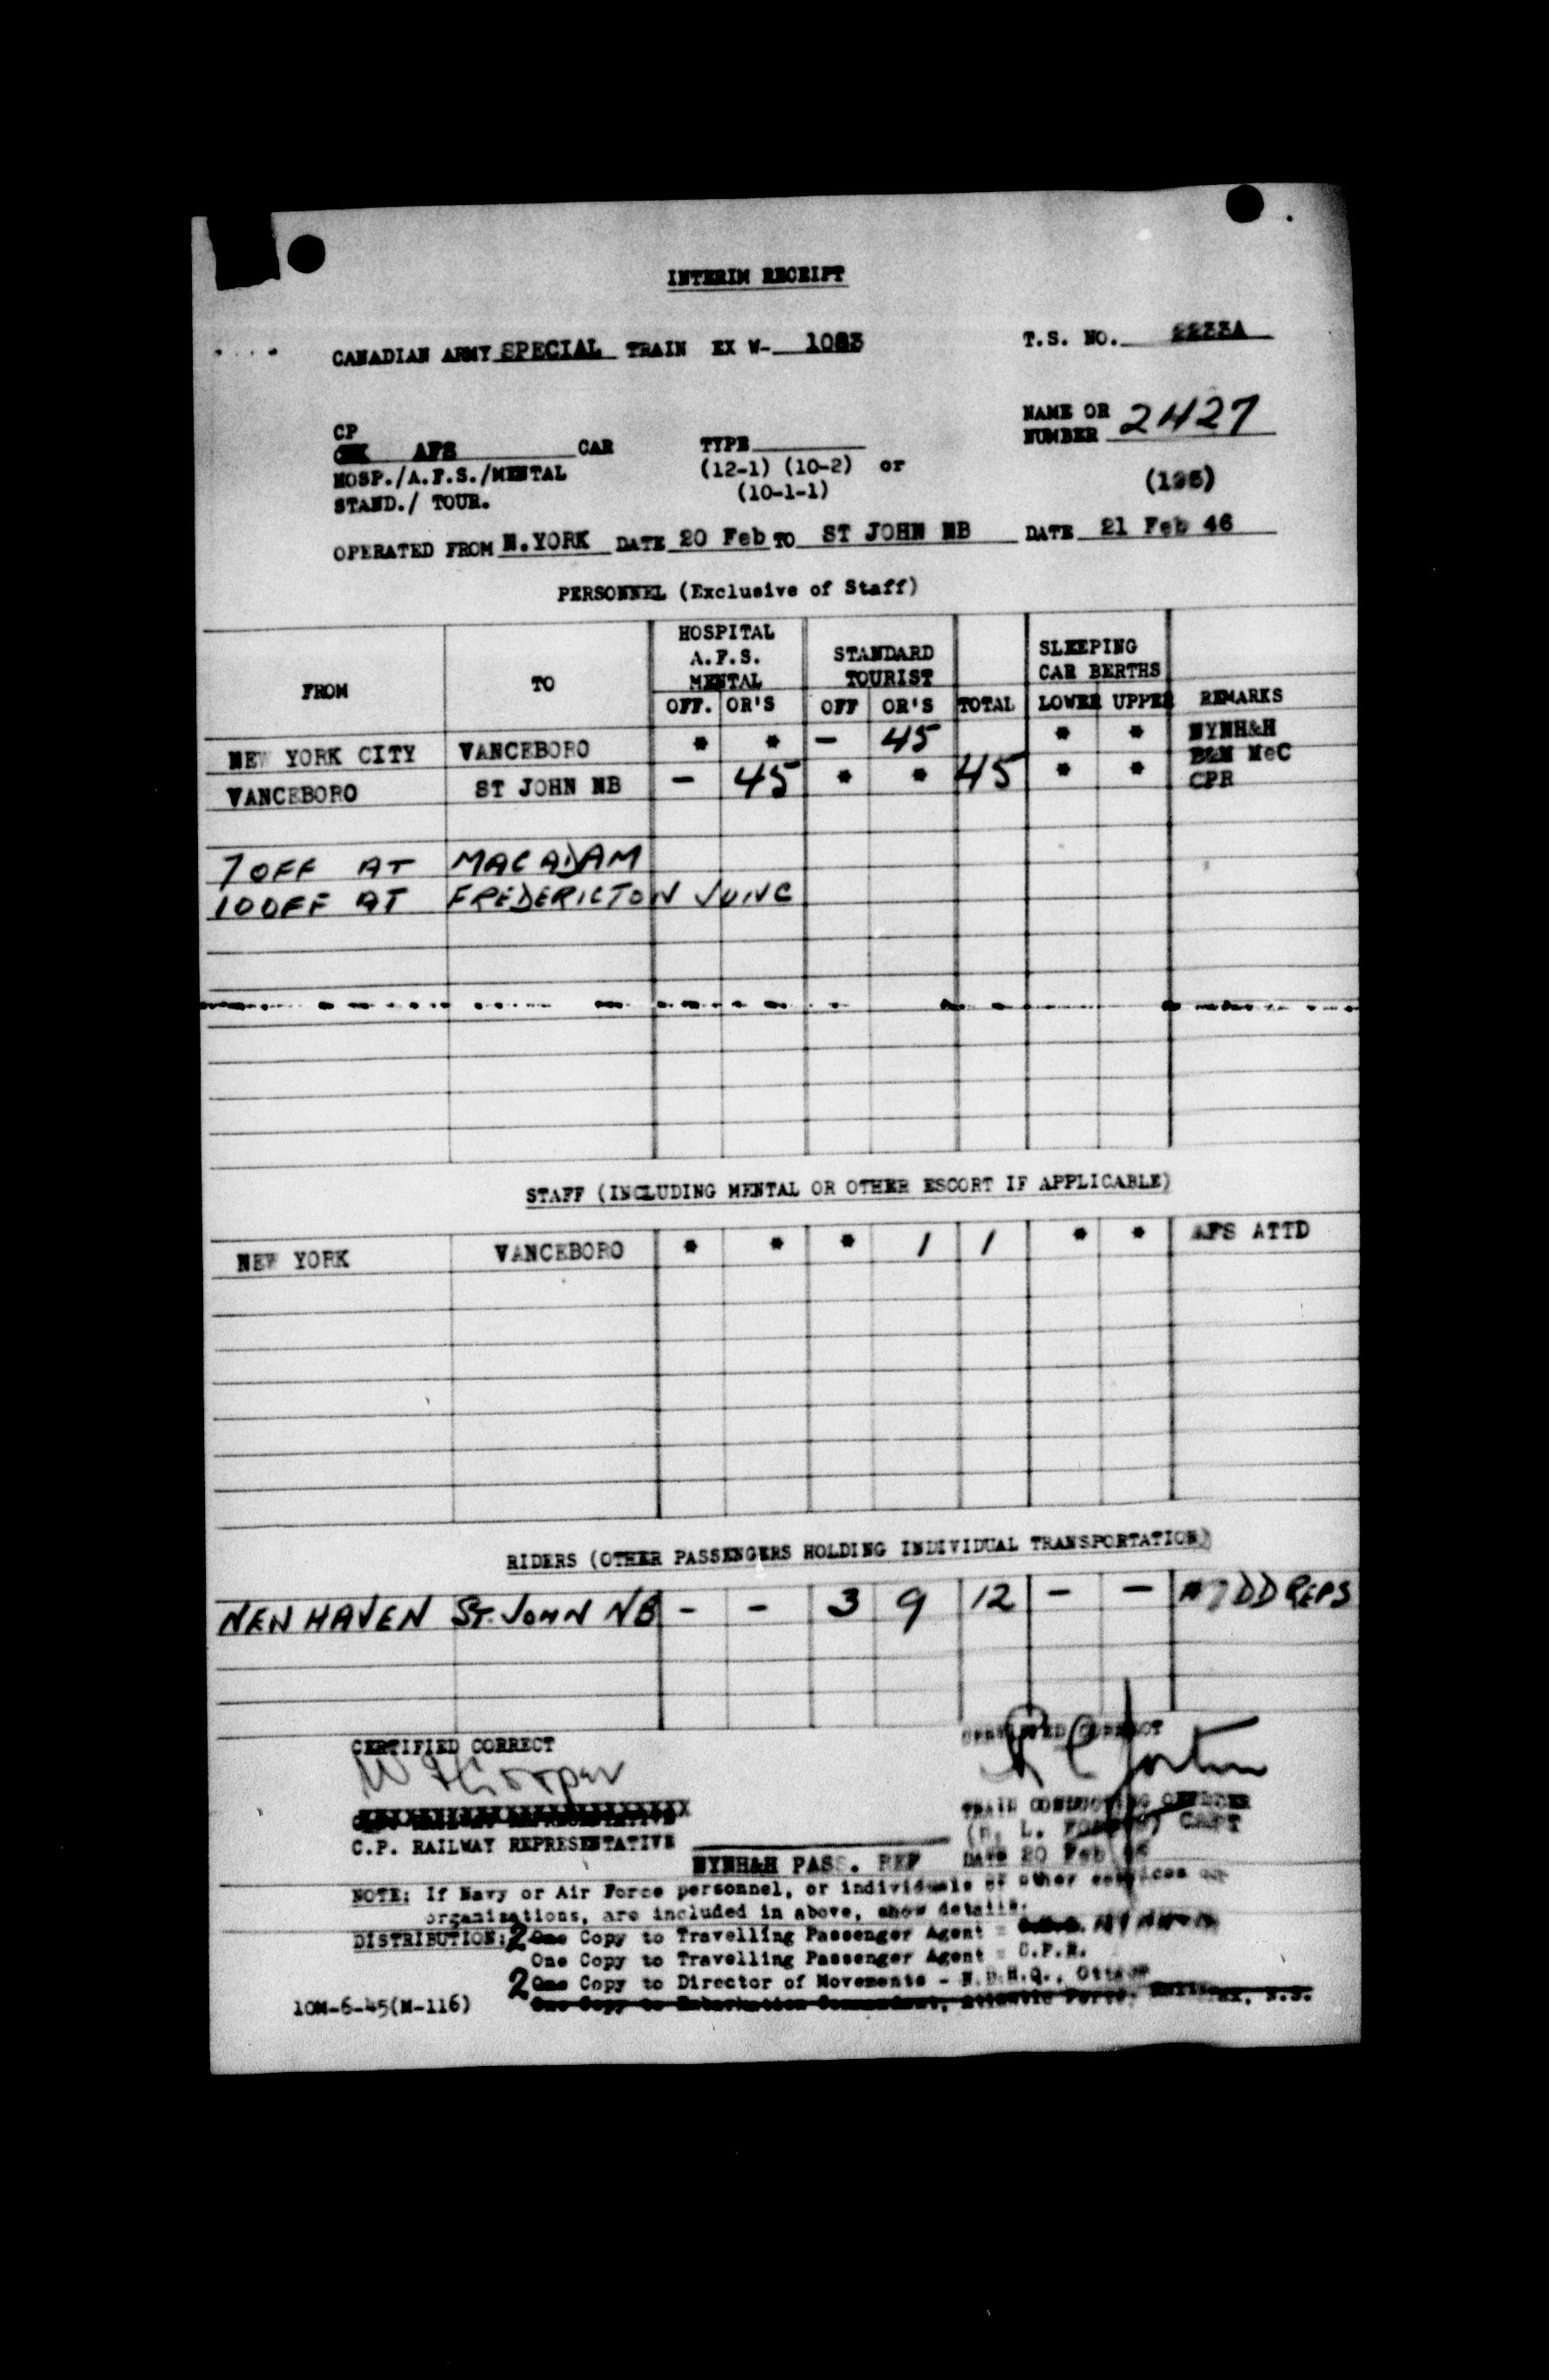 INTERIM RECEIPT
CANADIAN ARMY SPECIAL TRAIN EX W- 1083 T.S. NO. 2233A
CP NAME OR
AFS CAR TYPE NUMBER 2427
HOSP./A.F.S./MENTAL (12-1) (10-2) or
STAND./ TOUR. (10-1-1) (195)
OPERATED FROM N.YORK DATE 20 Feb TO ST JOHN NB DATE 21 Feb 46
PERSONNEL (Exclusive of Staff)
HOSPITAL
A.F.S. STANDARD SLEEPING
MENTAL TOURIST CAR BERTHS
FROM TO OFF. OR'S OFF OR'S TOTAL LOWER UPPER REMARKS
NEW YORK CITY VANCEBORO * * - 45 * * NYNH&H
B&M MeC
VANCEBORO ST JOHN NB - 45 * * 45 * * CPR
7 OFF AT MACADAM
10 OFF AT FREDERICTON JUNC
STAFF (INCLUDING MENTAL OR OTHER ESCORT IF APPLICABLE)
NEW YORK VANCEBORO * * * 1 1 * * AFS ATTD
RIDERS (OTHER PASSENGERS HOLDING INDIVIDUAL TRANSPORTATION)
NEW HAVEN ST. JOHN NB - - 3 9 12 - - #7 DD REPS
CERTIFIED CORRECT CERTIFIED CORRECT
TRAIN CONDUCTING OFFICER
C.P. RAILWAY REPRESENTATIVE CAPT
NYNH&H PASS. REP DATE 20 Feb 46
NOTE: If Navy or Air Force personnel, or individuals of other services or
organizations, are included in above, show details.
DISTRIBUTION: 2 One Copy to Travelling Passenger Agent -
One Copy to Travelling Passenger Agent - C.P.R.
2 One Copy to Director of Movements - N.D.H.Q., Ottawa
One Copy to Embarkation Commandant, Atlantic Ports, Halifax, N.S.
10M-6-45(M-116)